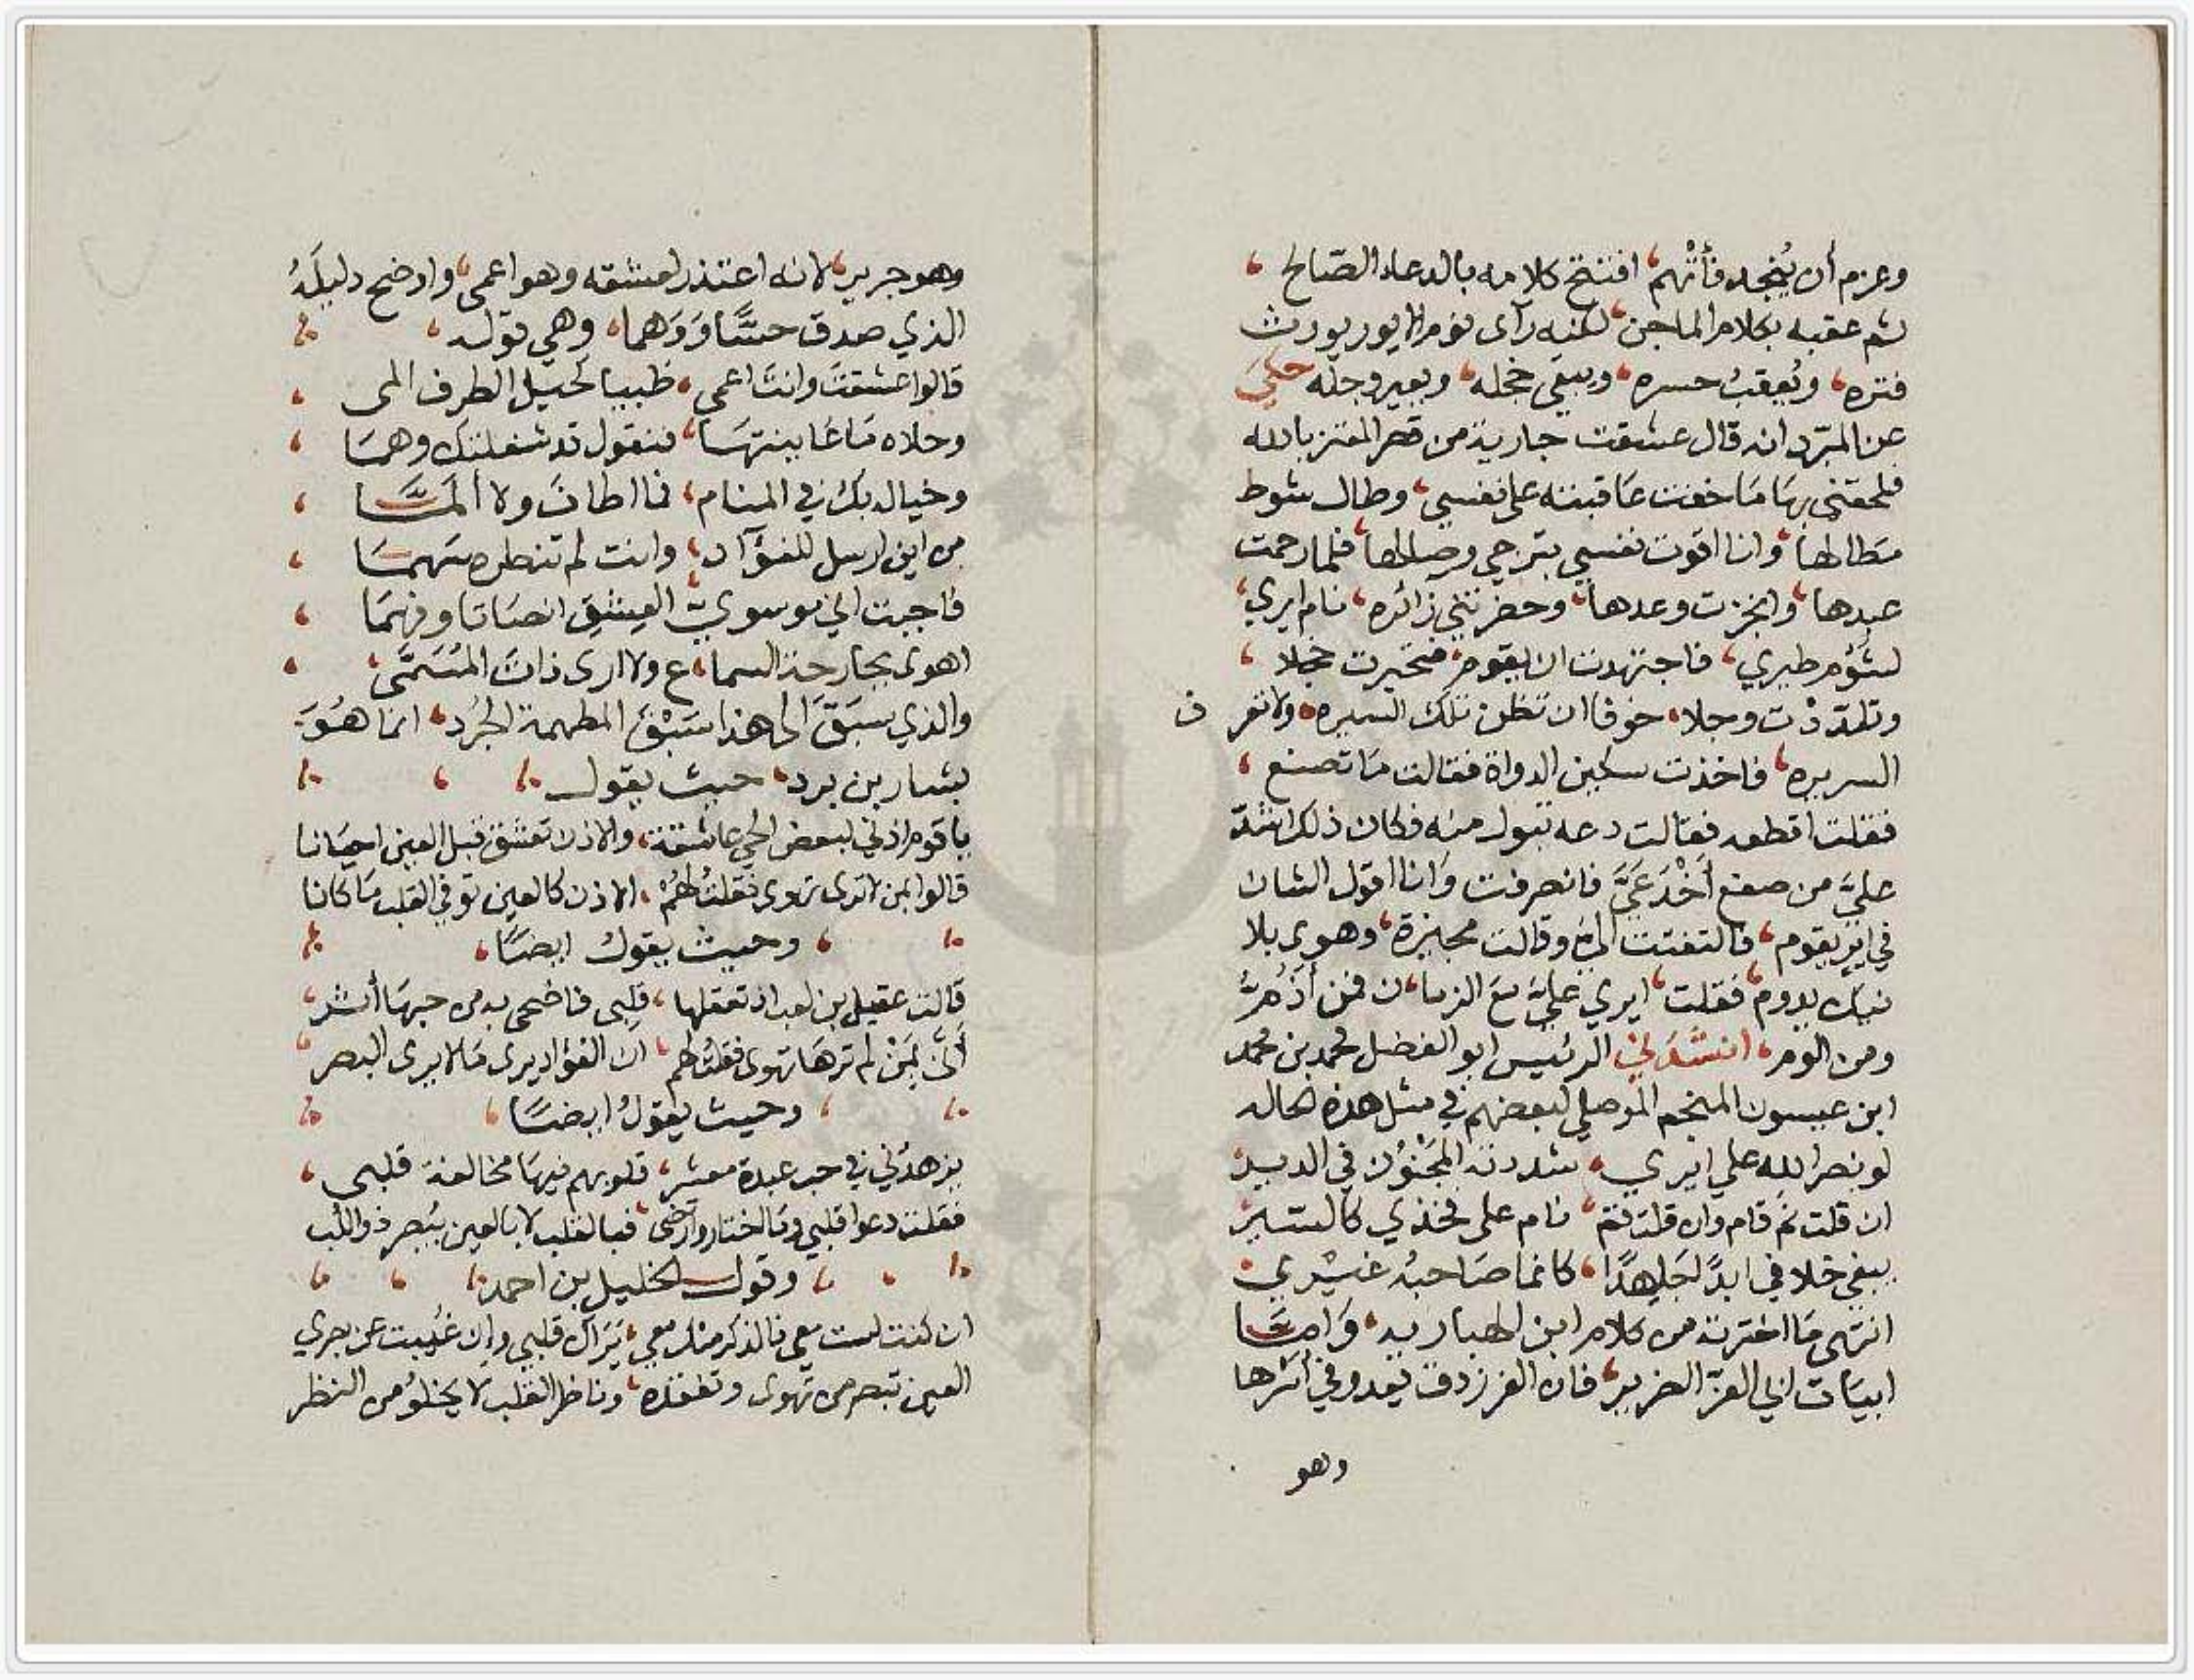 وعزم أن يُنجد فأتهم، افتتح كلامه بالدعاء الصّالح،
ثم عقبه بكلام الماجن، لكنه رآى نوم الايور يورث
فتره، ويُعقبُ حسره، ويبقى خجله، وبعير وجله، حكىَ
عن المبرّد انه قال عشقت جارية من قصر المعتز بالله
فلحقنى بها مَا خفت عَاقبته على نفسي، وطال شوط
مَطالها، وانا اقوت نفسي بترجي وصالها، فلما رحمت
عبدها، وانجزت وعدها، وحضرتني زائره، نام ايري،
لشؤم طيري، فاجتهدت ان يقوم، فتحيرت خجلا،
وتلدّدْت وجلا، خوفا ان تظن تلك السيره، ولا تعرف
السريره، فاخذت سكين الدواة فقالت مَا تصنع،
فقلت اقطعه فقالت دعه تبول منه فكان ذلك اشدّ
عليَّ من صفع أَخْدَعَيَّ فانصرفت وَانا اقول الشان
في اير يقوم، فالتفتت اليَّ وقالت مجيزة، وهوى بلا
نيك يدوم، فقلت، ايري عليَّ مَعَ الزمان، فمن أذُمُّ
ومن الوم، انشدَني الرئيس ابو الفضل محمد بن محمد
ابن عيسون المنجم الموصلي لبعضهم في مثل هذه الحاله
لو بنصر الله على ايري، شددته المجنُون في الدير
ان قلت نَم قام وان قلت قم، نام على فخذي كالسّير
يبغي خلافي ابدًا جَاهدًا، كانما صَاحبهُ غيري
انتهى مَا اخترته من كلام ابن الهباريه، وَامَّا
ابيَات ابي العزّ الضرير، فان الفرزدق يعدو في أثرها
وهو
وهو جرير، لانه اعتذر لعشقه وهو اعمى، واوضح دليلَهُ
الذي صدق حسًّا وَوَهما، وهي قوله،
قالوا عشقت وانت اعمى، ظبيا كحيل الطرف المى،
وحلاه مَا عَاينتهَا، فنقول قد شغلتك وهمَا،
وخياله بك في المنام، فما اطاف ولا المَّا،
من اين ارسل للفؤاد، وانت لم تنظره سَهمَا،
فاجبت اني موسويّ، العشق انصَاتا وفهمَا،
اهوى بجارحة السماع، ولا ارى ذات المُسَمَّى،
والذي سبَقَ الى هذا سَبْقَ المطهمة الجُرد، انما هُوَ
بشار بن برد، حيث يقول
يا قوم اذني لبعض الحي عاشقة، والاذن تعشق قبل العين احيَانا
قالوا بمن لا ترى تهوى فقلت لهُمُ، الاذن كالعين توفي القلب مَا كانا
وحيث يقول ايضًا،
قالت عقيل بن كعب اذ تعقلها، قلبى فاضحى به من حبهَا أثر،
أنّى بمَنْ لم ترهَا تهوى فقلت لهم، ان الفؤاد يرى مَا لا يرى البصر،
وحيث يقولُ ايضًا،
يزهدني في حب عبدة معشر، قلوبهم فيهَا مخالفة قلبى،
فقلت دعوا قلبي وما اختار وارتضى، فبالقلب لا بالعين يُبصر ذو اللُب
وقول الخليل بن احمد
ان كنت لست معي فالذكر منك معي، يَرَاك قلبي وإن غُيبت عن بصري
العين تبصر من تهوى وتفقده، وناظر القلب لا يخلو من النظر